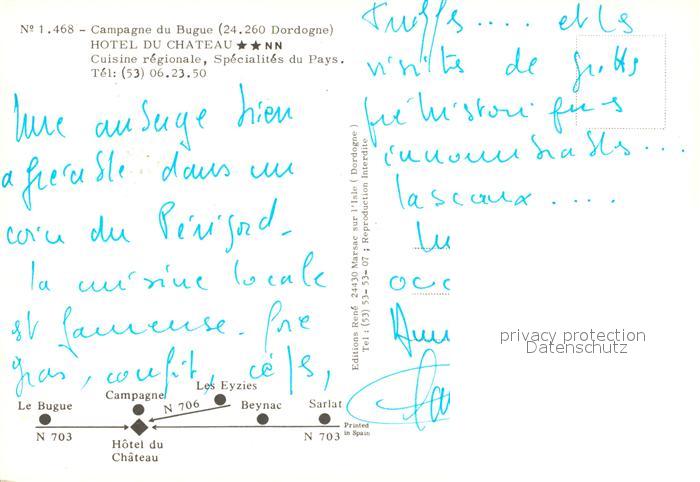 Nº 1.468 - Campagne du Bugue (24.260 Dordogne)
HOTEL DU CHATEAU ★★NN
Cuisine régionale, Spécialités du Pays.
Tél: (53) 06.23.50
Une auberge bien
agréable dans un
coin du Périgord_
la cuisine locale
est fameuse. foie
gras, confit, cèpes,
Truffes .... et les
visites de grottes
préhistoriques
innombrables...
lascaux ....
Editions René 24430 Marsac sur l'Isle ( Dordogne )
Tel : (53) 53-53-07 ; Reproduction Interdite
privacy protection
Datenschutz
Le Bugue
Campagne
N 706
Les Eyzies
Beynac
Sarlat
N 703
Hôtel du
Château
N 703
Printed
in Spain